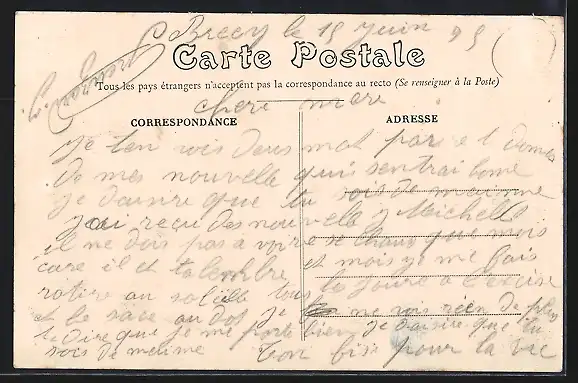 Brecy le 15 juin 95
Carte Postale
Tous les pays étrangers n'acceptent pas la correspondance au recto (Se renseigner à la Poste)
chere mere
CORRESPONDANCE
ADRESSE
Je ten vois deus mot par re t domes
de mes nouvelle qui sen trai bone
je daisire que tu sois de maime
Jai reçu des nouvelle j Michelle
il ne dois pas a voire se chaux que mois
care il et a lombre et mois je me fais
rotire au soleille tous le jours a lexcise
et le sace au dot je ne vois rien de plus
te dire que je me porte bien je daisire que tu
sois de meime Ton fiss pour la vie